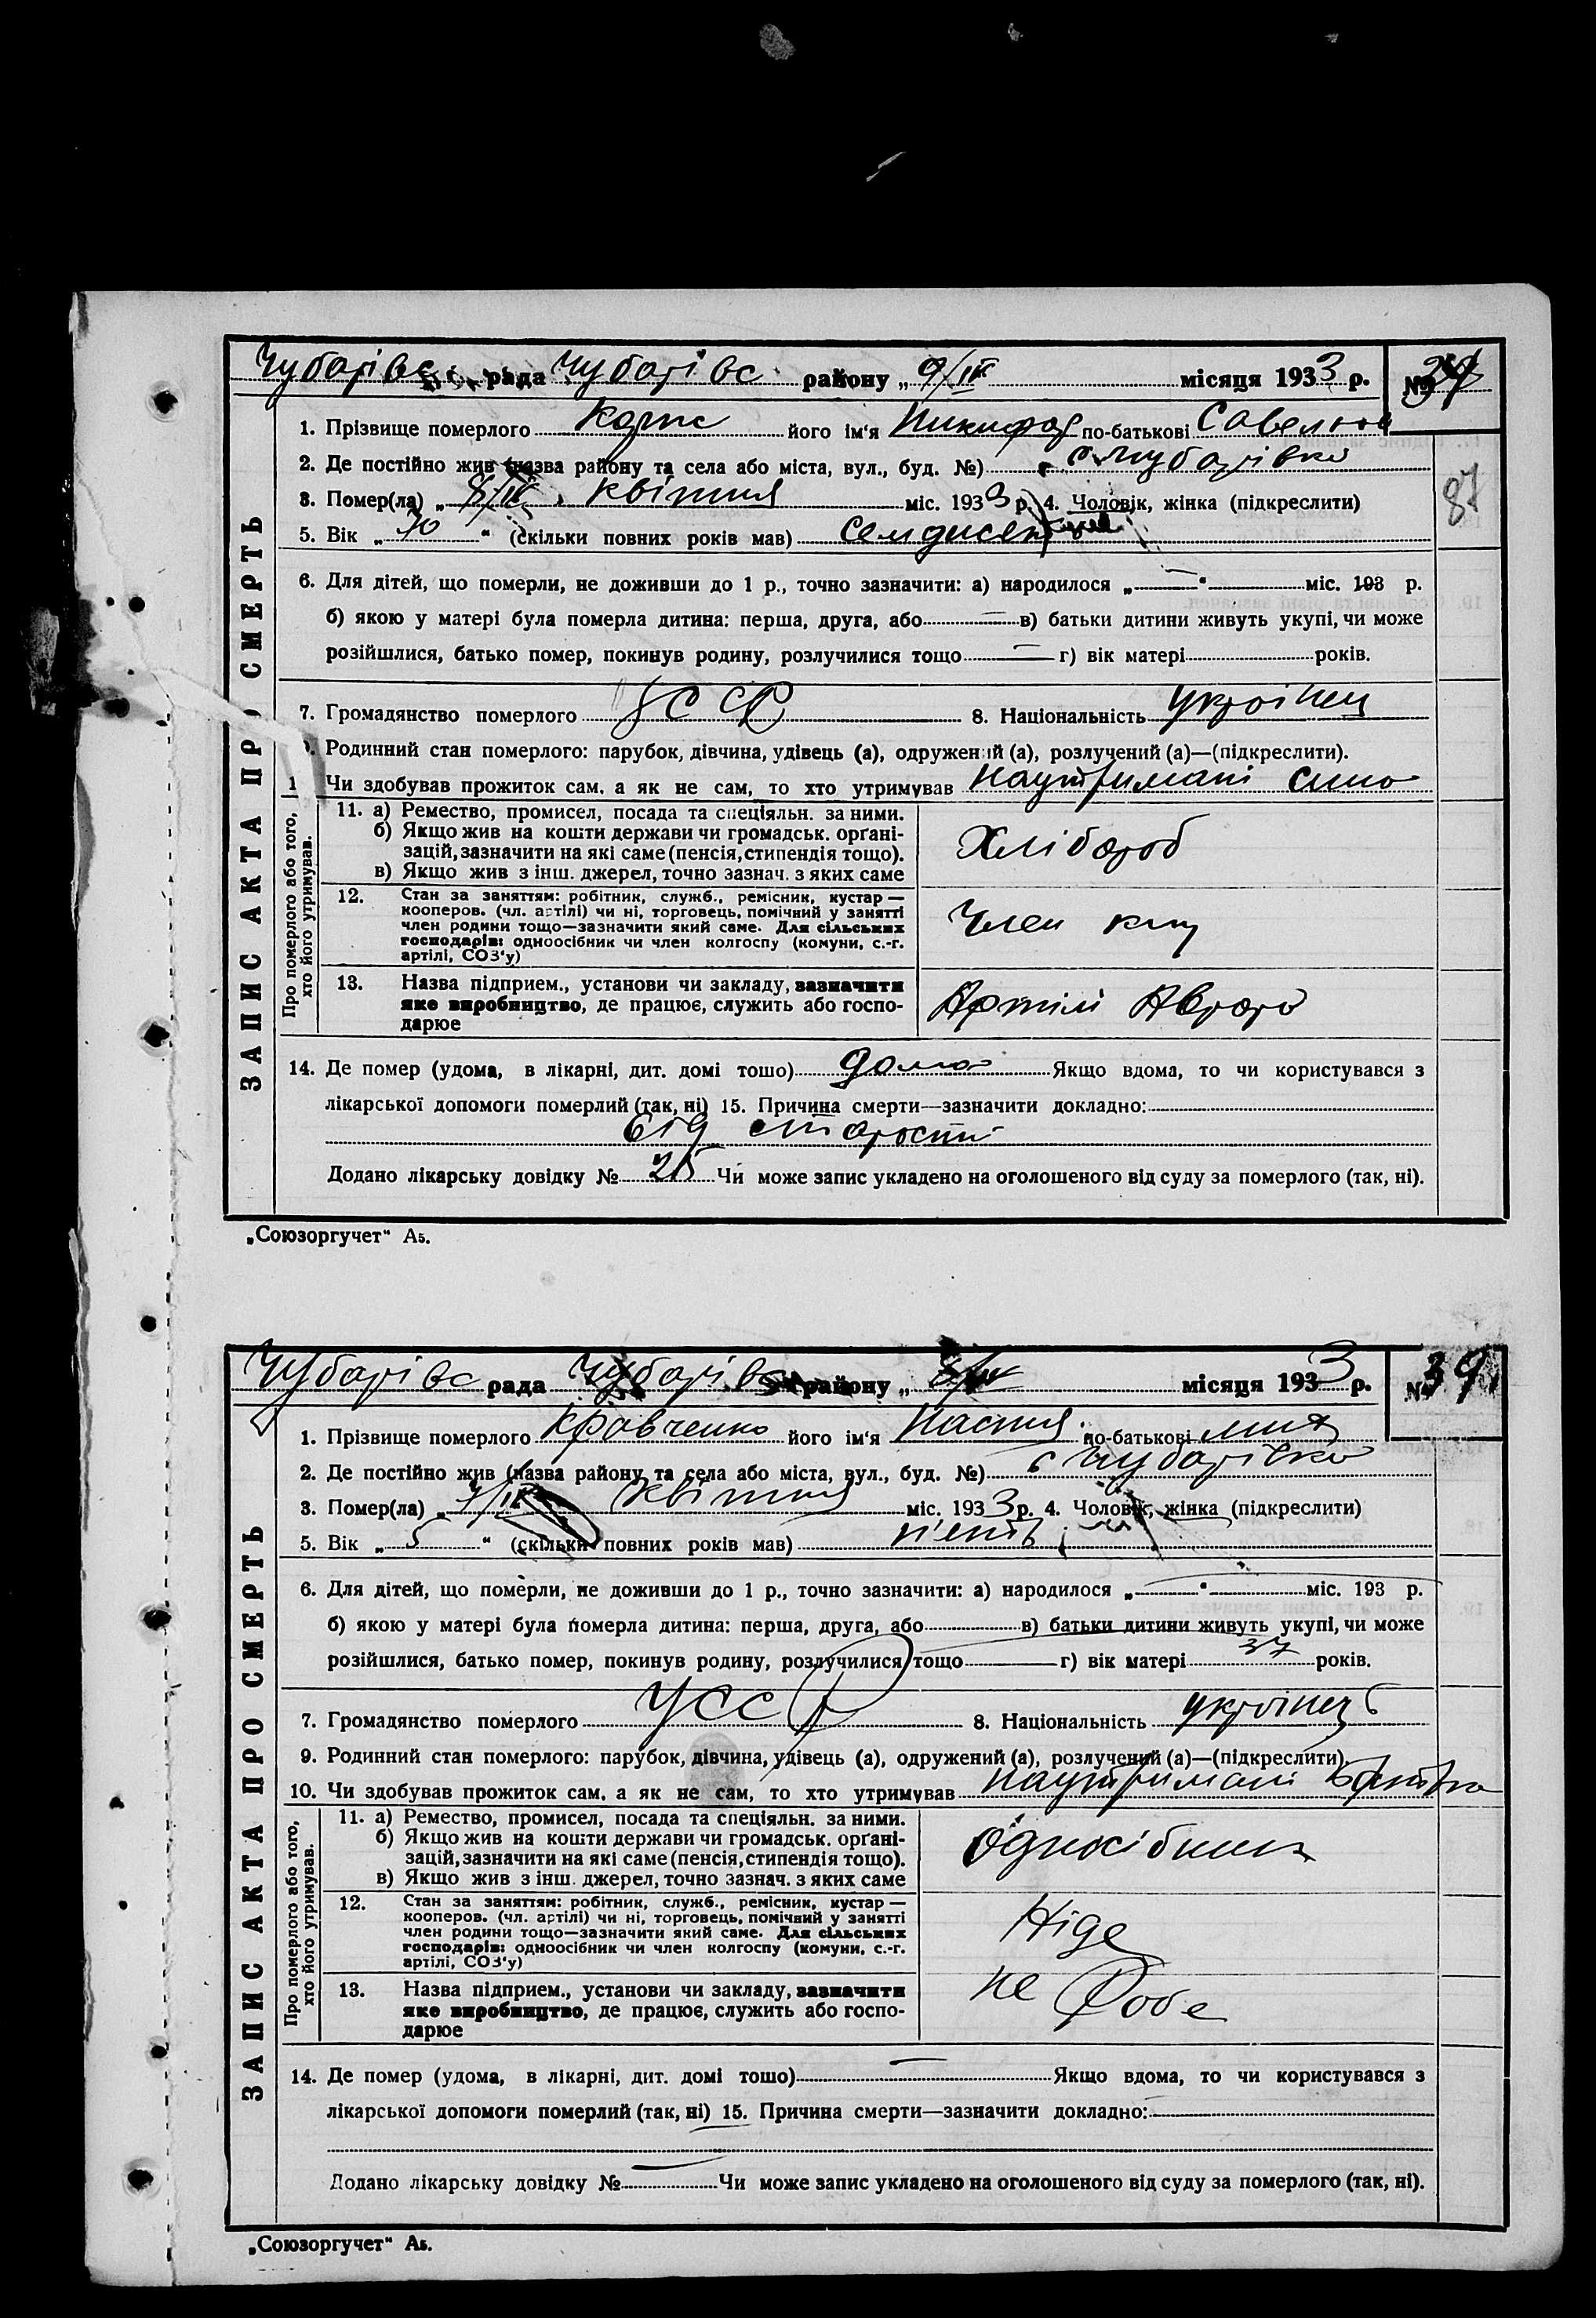 Чубарівс рада Чубарівс району „9/IV місяця 1933 р. №
1. Прізвище померлого його ім'я Никифор по-батькові
2. Де постійно жив (назва району та села або міста, вул., буд. №) с. Чубарівка
3. Помер(ла) „8/IV квітня міс. 1933 р. 4. Чоловік, жінка (підкреслити)
87
5. Вік „70" (скільки повних років мав) семдисят
6. Для дітей, що померли, не доживши до 1 р., точно зазначити: а) народилося „—" міс. 193 р.
б) якою у матері була померла дитина: перша, друга, або — в) батьки дитини живуть укупі, чи може
розійшлися, батько помер, покинув родину, розлучилися тощо — г) вік матері років.
7. Громадянство померлого УССР 8. Національність українец
Родинний стан померлого: парубок, дівчина, удівець (а), одружений (а), розлучений (а)—(підкреслити).
1 Чи здобував прожиток сам, а як не сам, то хто утримував наутримані сина
ЗАПИС АКТА ПРО СМЕРТЬ
Про померлого або того, хто його утримував.
11. а) Ремество, промисел, посада та спеціяльн. за ними.
б) Якщо жив на кошти держави чи громадськ. орґані-
зацій, зазначити на які саме (пенсія, стипендія тощо).
в) Якщо жив з інш. джерел, точно зазнач. з яких саме
Хлібароб
12. Стан за заняттям: робітник, служб., ремісник, кустар —
кооперов. (чл. артілі) чи ні, торговець, помічний у занятті
член родини тощо—зазначити який саме. Для сільських
господарів: одноосібник чи член колгоспу (комуни, с.-г.
артілі, СОЗ'у)
Член
13. Назва підприєм., установи чи закладу, зазначити
яке виробництво, де працює, служить або госпо-
дарює
Артілі Аврора
14. Де помер (удома, в лікарні, дит. домі тошо) дома Якщо вдома, то чи користувався з
лікарської допомоги померлий (так, ні) 15. Причина смерти—зазначити докладно:
від старости
Додано лікарську довідку № 25 Чи може запис укладено на оголошеного від суду за померлого (так, ні).
„Союзоргучет" А5.
Чубарівс рада Чубарівс району „ місяця 1933 р. № 39
1. Прізвище померлого Кравченко його ім'я Настя по-батькові
2. Де постійно жив (назва району та села або міста, вул., буд. №) с Чубарівка
3. Помер(ла) „7/IV квітня міс. 1933 р. 4. Чоловік, жінка (підкреслити)
5. Вік „5" (скільки повних років мав) пˈять
6. Для дітей, що померли, не доживши до 1 р., точно зазначити: а) народилося „—" міс. 193 р.
б) якою у матері була померла дитина: перша, друга, або в) батьки дитини живуть укупі, чи може
розійшлися, батько помер, покинув родину, розлучилися тощо г) вік матері 37 років.
7. Громадянство померлого УССР 8. Національність українець
9. Родинний стан померлого: парубок, дівчина, удівець (а), одружений (а), розлучений (а)—(підкреслити).
10. Чи здобував прожиток сам, а як не сам, то хто утримував наутримані батька
ЗАПИС АКТА ПРО СМЕРТЬ
Про померлого або того, хто його утримував.
11. а) Ремество, промисел, посада та спеціяльн. за ними.
б) Якщо жив на кошти держави чи громадськ. орґані-
зацій, зазначити на які саме (пенсія, стипендія тощо).
в) Якщо жив з інш. джерел, точно зазнач. з яких саме
12. Стан за заняттям: робітник, служб., ремісник, кустар —
кооперов. (чл. артілі) чи ні, торговець, помічний у занятті
член родини тощо—зазначити який саме. Для сільських
господарів: одноосібник чи член колгоспу (комуни, с.-г.
артілі, СОЗ'у)
Ніде
13. Назва підприєм., установи чи закладу, зазначити
яке виробництво, де працює, служить або госпо-
дарює
не робе
14. Де помер (удома, в лікарні, дит. домі тошо) — Якщо вдома, то чи користувався з
лікарської допомоги померлий (так, ні) 15. Причина смерти—зазначити докладно:
Додано лікарську довідку № — Чи може запис укладено на оголошеного від суду за померлого (так, ні).
„Союзоргучет" А5.